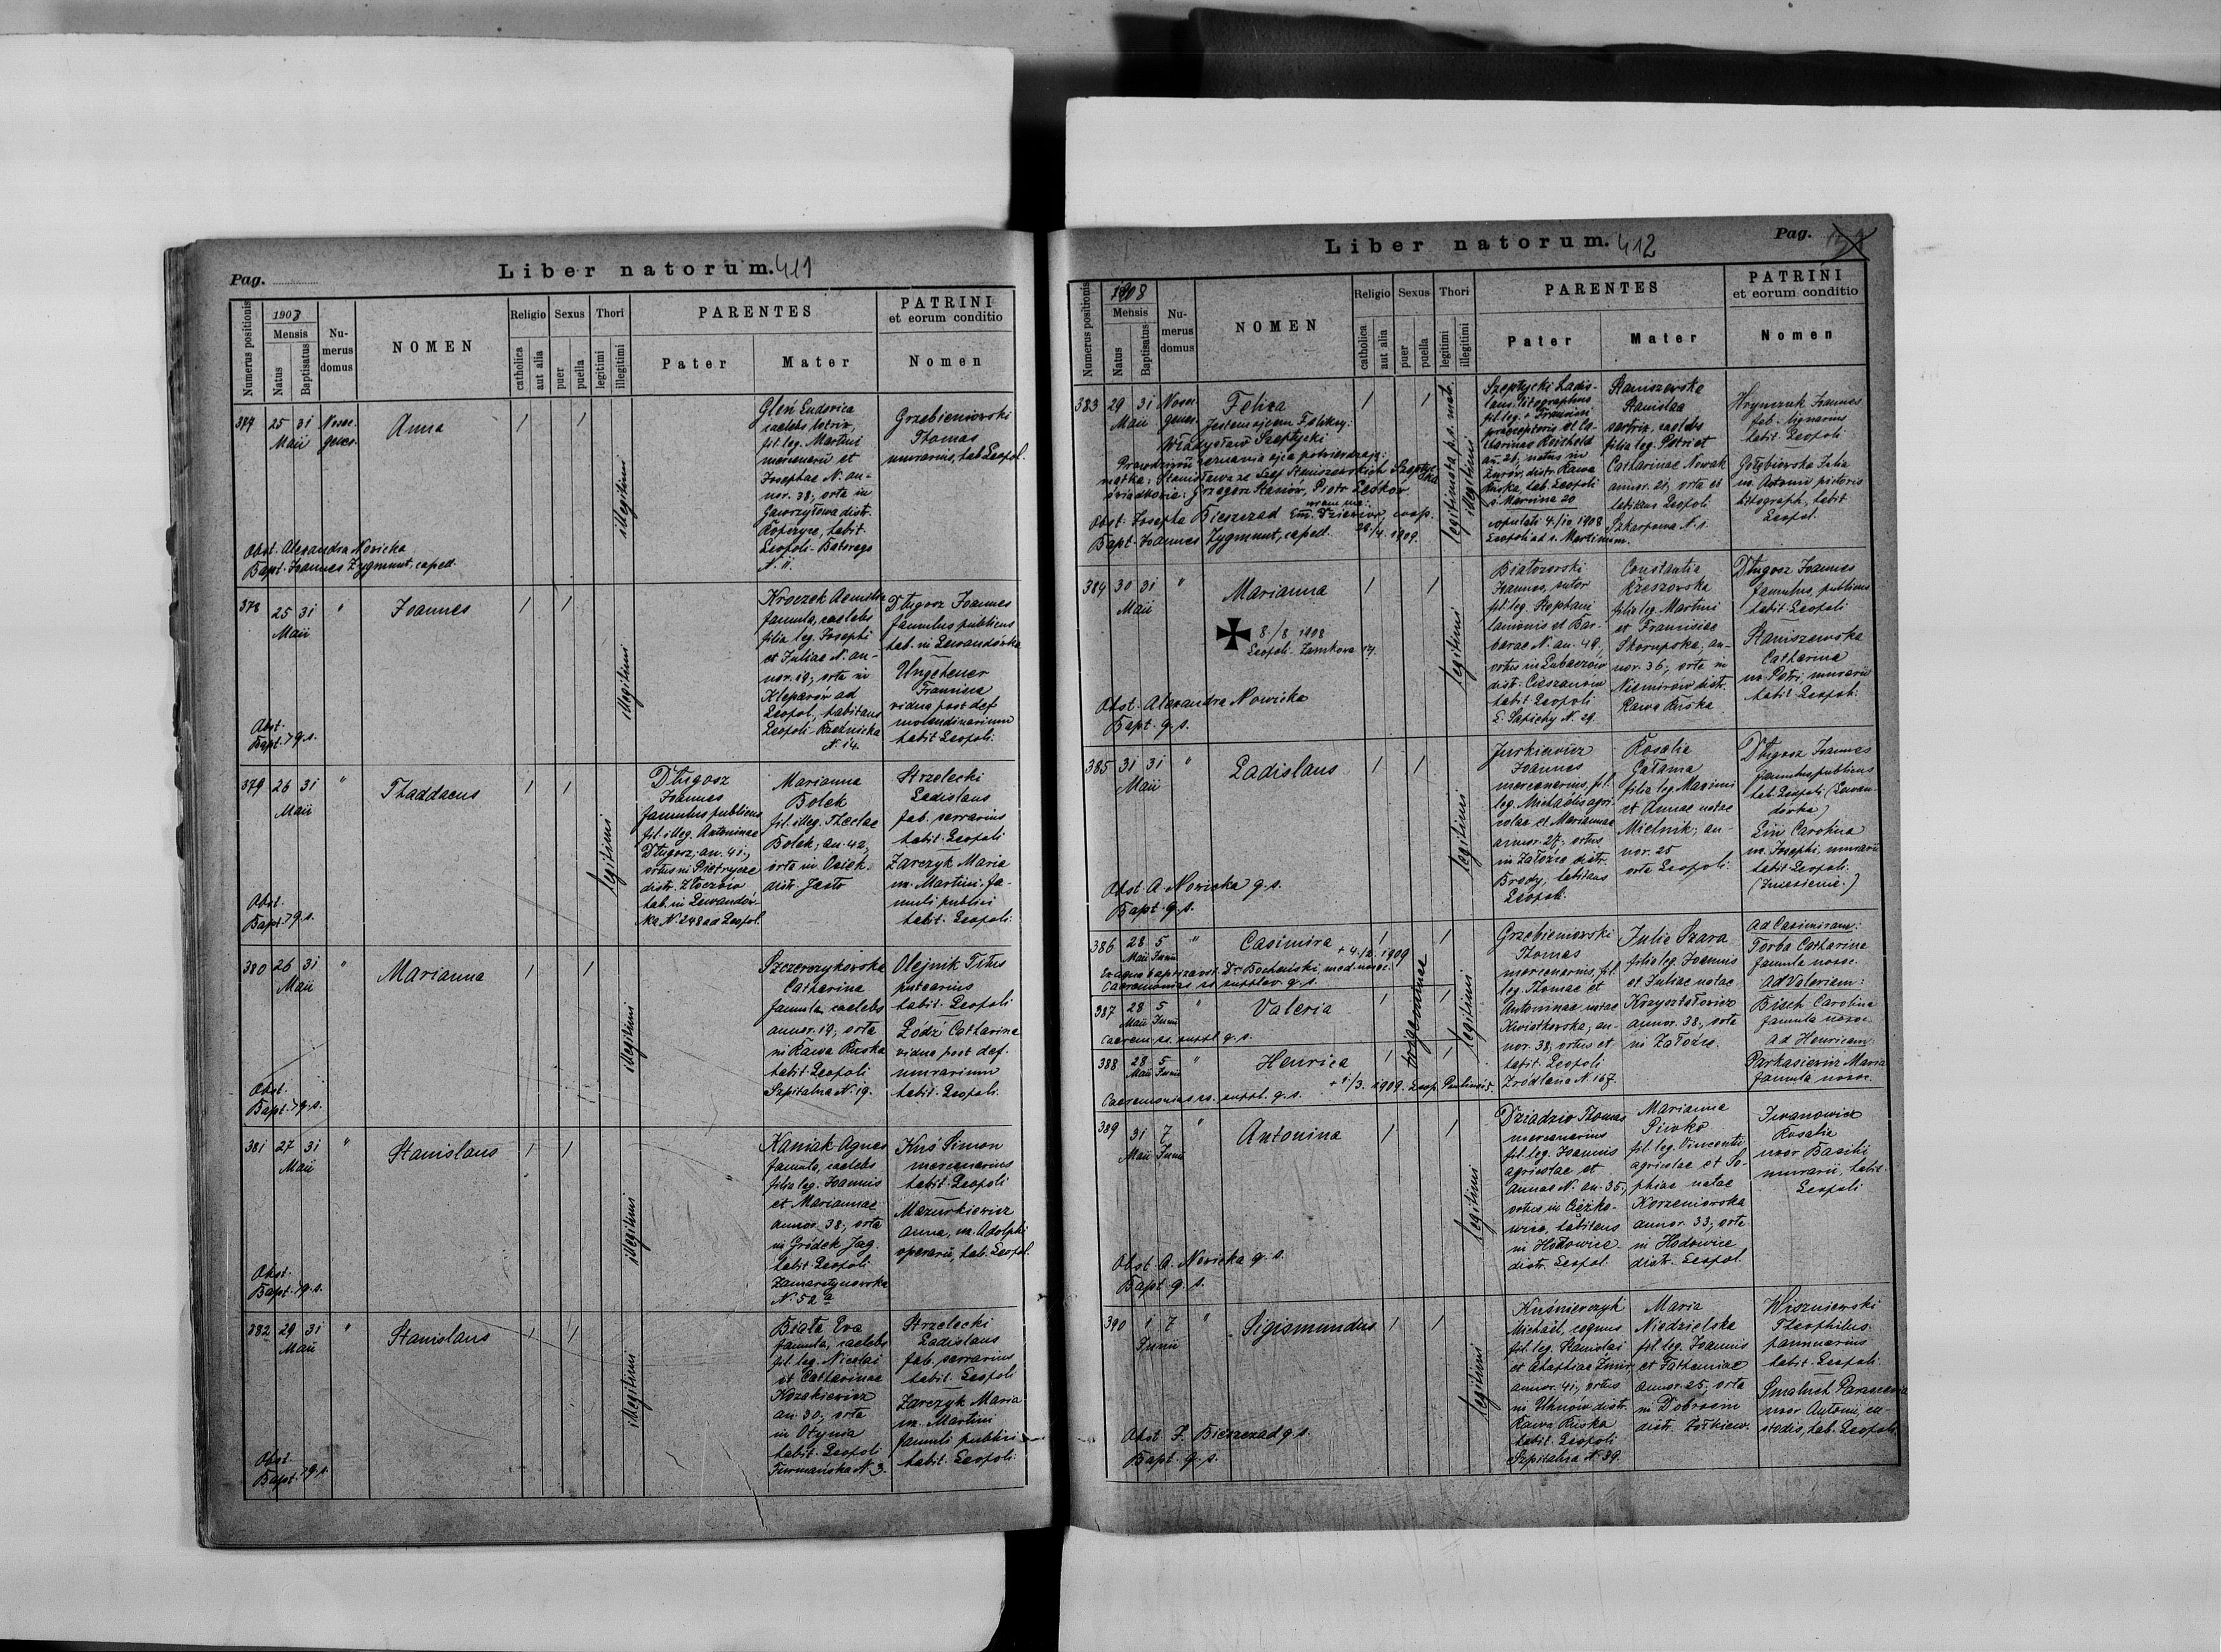 Pag.
Liber natorum. 411
Numerus positionis
1908
Mensis
Natus
Baptisatus
Nu-
merus
domus
NOMEN
Religio
catholica
aut alia
Sexus
puer
puella
Thori
legitimi
illegitimi
PARENTES
Pater
Mater
PATRINI
et eorum conditio
Nomen
25 31
Maii
Anna
illegitimi
Gleń Ludovica
caelebs, lotrix,
fil. leg. Martini
mercenarii et
Josephae N. an-
nor. 38, orta in
Gawrzyłowa distr.
Ropczyce, habit.
Leopoli - Batorego
N. 11.
Grzebieniowski
Thomas
murarius, hab. Leopol.
Obst. Alexandra Nowicka
Bapt. Joannes Zygmunt, caped.
378
25 31
Maii
"
Joannes
illegitimi
famula, caelebs
filia leg. Josephi
et Juliae N. an-
nor. 19, orta in
Kleparów ad
Leopol., habitans
Leopoli - Rzeźnicka
N. 14.
Długosz Joannes
famulus publicus
hab. in Lewandówka
Ungeheuer
Francisca
vidua post def.
molendinarium
habit. Leopoli.
Obst.
Bapt. > q. s.
379
26 31
Maii
"
Thaddaeus
legitimi
Długosz
Joannes
famulus publicus
fil. illeg. Antoninae
Długosz, an. 41,
ortus in Pietrycze
distr. Złoczów
hab. in Lewandów-
ka N. 248 ad Leopol.
Marianna
Bolek
fil. illeg. Theclae
Bolek, an. 42,
orta in Osiek
distr. Jasło
Strzelecki
Ladislaus
fab. serrarius
habit. Leopoli
Zarczyk Maria
ux. Martini fa-
muli publici
habit. Leopoli.
Obst.
Bapt. > q. s.
380
26 31
Maii
"
Marianna
illegitimi
Szczerczykowska
Catharina
famula caelebs
annor. 19, orta
in Rawa Ruska
habit. Leopoli
Szpitalna N. 19.
Olejnik Titus
putearius
habit. Leopoli
Łodzi Catharina
vidua post def.
murarium
habit. Leopoli.
Obst.
Bapt. > q. s.
381
27 31
Maii
"
Stanislaus
illegitimi
Kaniak Agnes
famula, caelebs
filia leg. Joannis
et Mariannae
annor. 38, orta
in Gródek Jag.
habit. Leopoli
Zamarstynowska
N. 52 a
Kuś Simon
mercenarius
habit. Leopoli
Mazurkiewicz
Anna, ux. Adolphi
operarii, hab. Leopol.
Obst.
Bapt. > q. s.
382
29 31
Maii
"
Stanislaus
illegitimi
Biała Eva
famula, caelebs
fil. leg. Nicolai
et Catharinae
Kozakiewicz
an. 30, orta
in Otynia
habit. Leopoli
Furmańska N. 3.
Strzelecki
Ladislaus
fab. serrarius
habit. Leopoli
Zarczyk Maria
ux. Martini
famuli publici
habit. Leopoli.
Obst.
Bapt. > q. s.
Liber natorum. 412
Pag.
Numerus positionis
1908
Mensis
Natus
Baptisatus
Nu-
merus
domus
NOMEN
Religio
catholica
aut alia
Sexus
puer
puella
Thori
legitimi
illegitimi
PARENTES
Pater
Mater
PATRINI
et eorum conditio
Nomen
383
29 31
Maii
Feliza
Jestem ojcem Felixy:
Władysław Szeptycki
Prawdziwość zeznania ojca potwierdzają:
matka: Stanisława ze Staniszewskich Szeptycka
świadkowie: Grzegorz Stasiów, Piotr Leśków
Obst. Josepha Bieszczad
Bapt. Joannes Zygmunt, caped. 29/4. 1909.
legitimata p. s. mat.
illegitimi
Szeptycki Ladis-
laus, litographus
fil. leg. + Francisci
praeceptoris et Ca-
tharinae Reichold
an. 26, natus in
Żurów, distr. Rawa
Ruska, hab. Leopoli
S. Marcina 20
copulati 4/10 1908
Leopoli ad s. Martinum.
Staniszewska
Stanislaa
sartrix, caelebs
filia leg. Petri et
Catharinae Nowak
annor. 21, orta et
habitans Leopoli
Szkarpowa N. 1.
Hrynczuk Joannes
fab. lignarius
habit. Leopoli
Gołębiowska Julia
ux. Antonii pictoris
litograph., habit.
Leopol.
384
30 31
Maii
"
Marianna
8/8 1908
Leopoli - Zamkowa 14.
legitimi
Białozorski
Joannes, sutor
fil. leg. Stephani
lanionis et Bar-
barae N. an. 49,
ortus in Lubaczów
distr. Cieszanów
habit. Leopoli
L. Sapiehy N. 29.
Constantia
Rzeszowska
filia leg. Martini
et Franciscae
Skorupska, an-
nor. 36, orta in
Niemirów distr.
Rawa Ruska
Długosz Joannes
famulus publicus
habit. Leopoli
Staniszewska
Catharina
ux. Petri, murarii
habit. Leopoli.
Obst. Alexandra Nowicka
Bapt. q. s.
385
31 31
Maii
"
Ladislaus
legitimi
Jurkiewicz
Joannes
mercenarius, fil.
leg. Michaelis agri-
colae et Mariannae
annor. 27, ortus
in Załoźce distr.
Brody, habitans
Leopoli.
Rosalia
Gałama
filia leg. Maximi
et Annae natae
Mielnik, an-
nor. 25
orta Leopoli.
Długosz Joannes
famulus publicus
hab. Leopoli (Lewan-
dówka)
Lin Carolina
ux. Josephi, murarii
habit. Leopoli
(Zniesienie.)
Obst. A. Nowicka q. s.
Bapt. q. s.
386
28 5
Maii Junii
"
Casimira
+ 4/2. 1909
Ex aqua baptizavit Dr Bocheński, med. nosoc.
Caeremonias ss. supplev. q. s.
387
28 5
Maii Junii
"
Valeria
Caerem. ss. suppl. q. s.
388
28 5
Maii Junii
"
Henrica
+ 1/3. 1909. Leop. Paulinów 5.
Caeremonias ss. suppl. q. s.
trigeminae
legitimi
Grzebieniowski
Thomas
mercenarius, fil.
leg. Thomae et
Antoninae natae
Kwiatkowska, an-
nor. 38, ortus et
habit. Leopoli
Źródlana N. 167.
Julia Szara
filia leg. Joannis
et Juliae natae
Krzyształowicz
annor. 38, orta
in Załoźce.
Ad Casimiram:
Torba Catharina
famula nosoc.
Ad Valeriam:
Bisek Carolina
famula nosoc.
Ad Henricam:
Parkasiewicz Maria
famula nosoc.
389
31 7
Maii Junii
"
Antonina
legitimi
Dziadzio Thomas
mercenarius
fil. leg. Joannis
agricolae et
Annae N. an. 35,
ortus in Ciężko-
wice, habitans
in Hodowice
distr. Leopol.
Marianna
Piwko
fil. leg. Vincentii
agricolae et So-
phiae natae
Korzeniowska
annor. 33, orta
in Hodowice
distr. Leopol.
Iwanowicz
Rosalia
uxor Basilii
murarii, habit.
Leopoli
Obst. A. Nowicka q. s.
Bapt. q. s.
390
1 7
Junii
"
Sigismundus
legitimi
Kuśnierczyk
Michaël, coquus
fil. leg. Stanislai
et Ahaphiae Żmir,
annor. 41, ortus
in Uhnów distr.
Rawa Ruska
habit. Leopoli
Szpitalna N. 39.
Maria
Niedzielska
fil. leg. Joannis
et Tathianae
annor. 25, orta
in Dobrosin
distr. Żółkiew.
Wiszniewski
Theophilus
pannuarius
habit. Leopoli.
uxor Antonii, cu-
stodis, hab. Leopoli.
Obst. J. Bieszczad q. s.
Bapt. q. s.